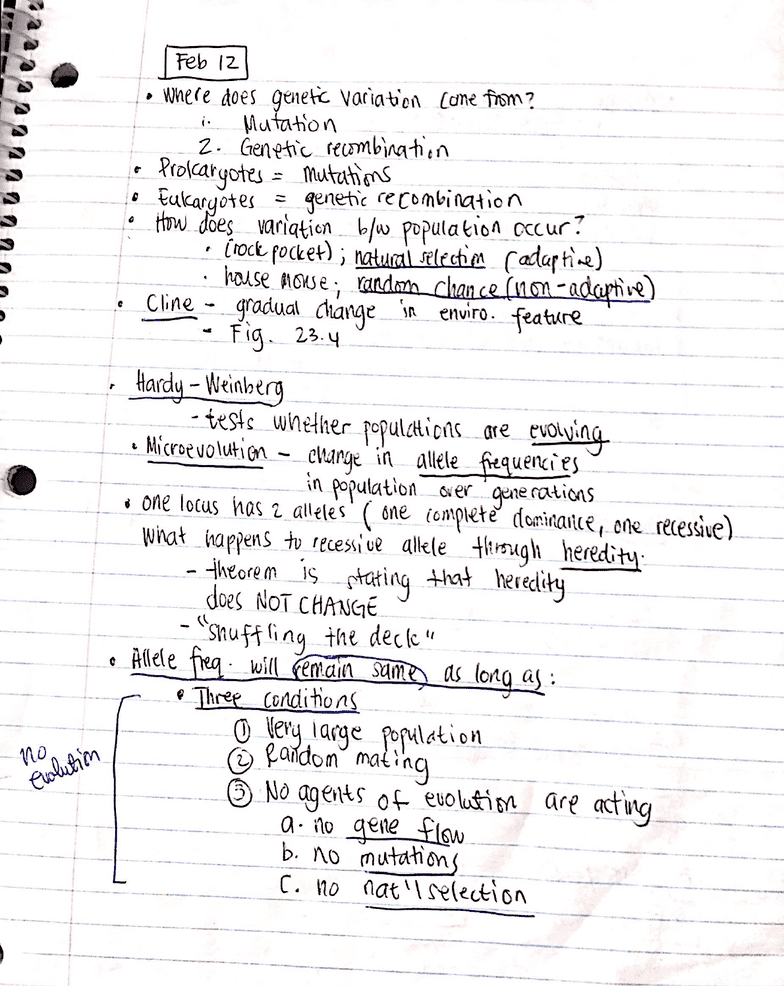 Feb 12
• Where does genetic variation come from?
1. Mutation
2. Genetic recombination
• Prokaryotes = mutations
• Eukaryotes = genetic recombination
• How does variation b/w population occur?
• (rock pocket) ; natural selection (adaptive)
• house mouse ; random chance (non-adaptive)
• Cline - gradual change in enviro. feature
- Fig. 23.4
• Hardy-Weinberg
- tests whether populations are evolving
• Microevolution - change in allele frequencies
in population over generations
• one locus has 2 alleles (one complete dominance, one recessive)
What happens to recessive allele through heredity.
- theorem is stating that heredity
does NOT CHANGE
- "shuffling the deck"
• Allele freq. will remain same as long as:
• Three conditions
① Very large population
② Random mating
③ No agents of evolution are acting
a. no gene flow
b. no mutations
c. no nat'l selection
no
evolution